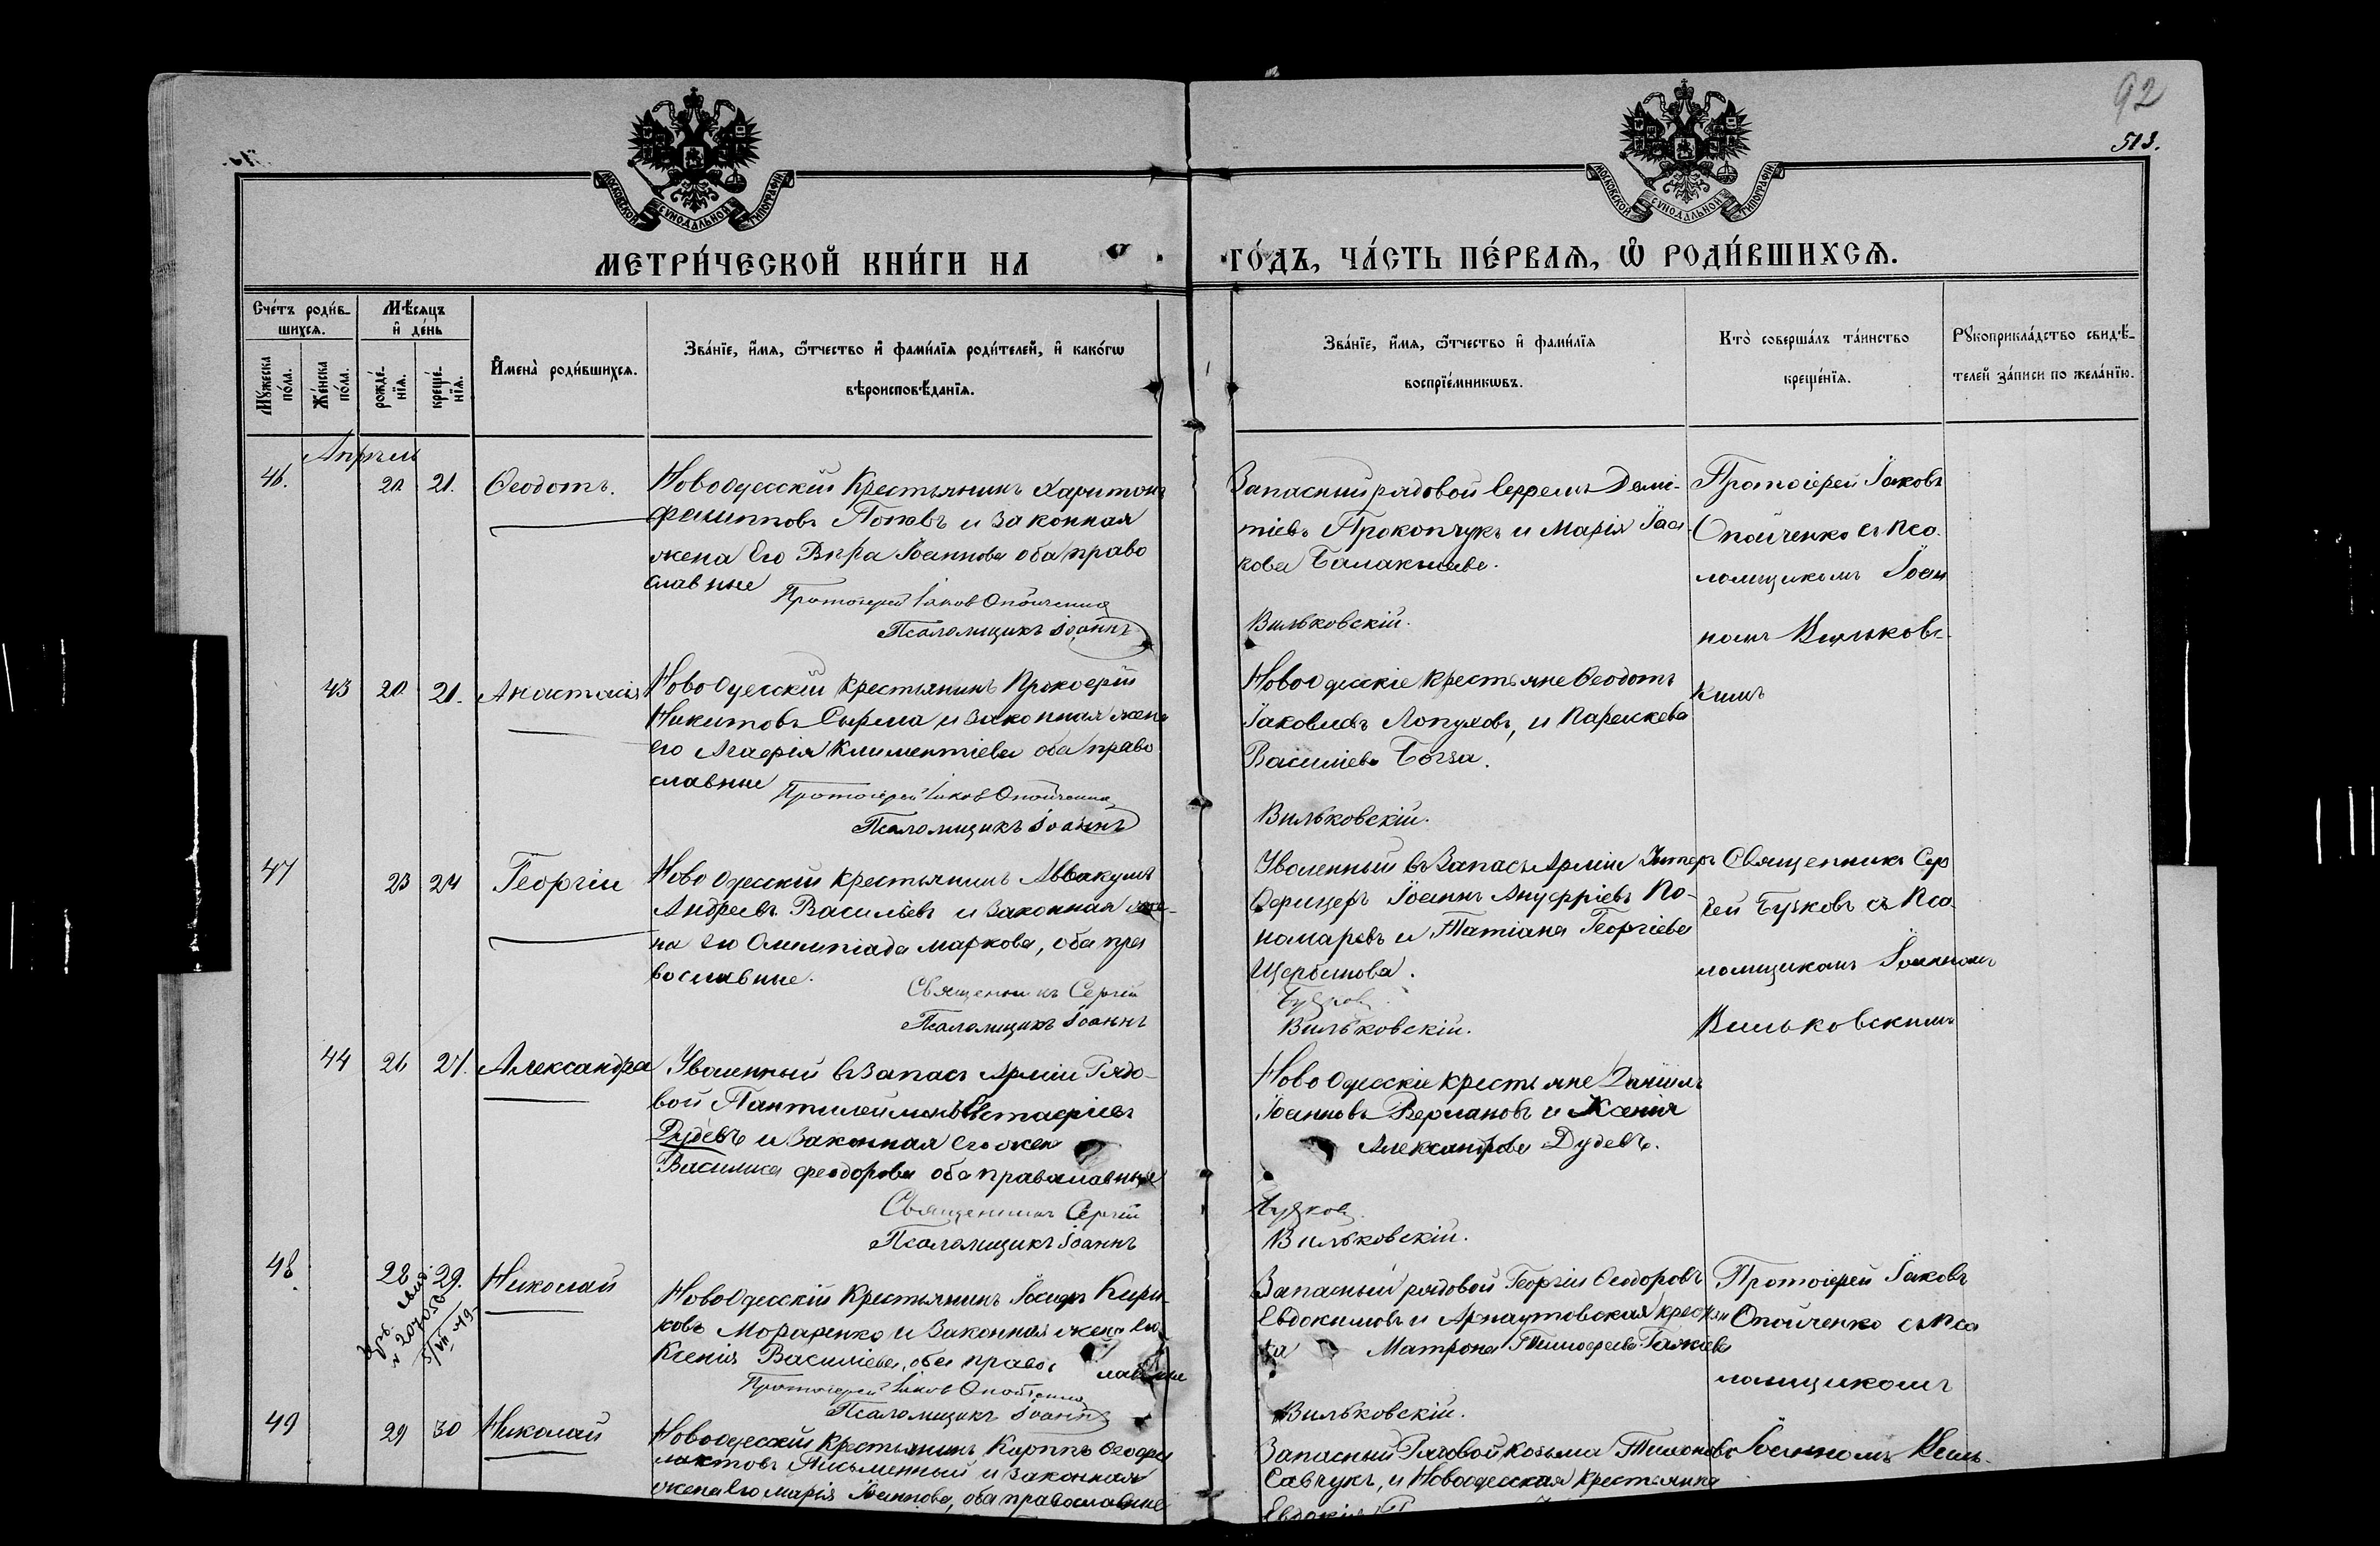 92
513.
МОСКОВСКОЙ СУНОДАЛЬНОЙ ТИПОГРАФІИ
МОСКОВСКОЙ СУНОДАЛЬНОЙ ТИПОГРАФІИ
МЕТРИ́ЧЕСКОЙ КНИ́ГИ НА
ГО́ДЪ, ЧА́СТЬ ПЕ́РВАѦ, Ѡ РОДИ́ВШИХСѦ.
Сче́тъ роди́в-
шихсѧ.
Мѣ́сѧцъ
и де́нь
Му́жеска
по́ла.
Же́нска
по́ла.
рожде́-
нїѧ.
креще́-
нїѧ.
Имена̀ роди́вшихсѧ.
Зва́нїе, и́мѧ, ѻ҆́тчество и фами́лїѧ роди́телей, и како́гѡ
вѣроисповѣ́данїѧ.
Зва́нїе, и́мѧ, ѻ҆́тчество и фами́лїѧ
воспрїе́мникѡвъ.
Кто̀ соверша́лъ та́инство
креще́нїѧ.
Рꙋкоприкла́дство свидѣ́-
телей за́писи по жела́нїю.
Апрѣль
46.
20 21.
Ѳеодотъ.
Новоодесскій Крестьянинъ Харитонъ
Филипповъ Поповъ и законная
жена его Вѣра Іоаннова оба право
славные
Протоіерей Іаковъ Опойченко
Псаломщикъ Іоаннъ
Запасный рядовой Сергѣй Деми-
тіевъ Прокопчукъ и Марія Іа
кова
Вильковскій.
Протоіерей Іаковъ
Опойченко съ Пса-
ломщикомъ Іоан
номъ Вильковс-
кимъ
43 20 21.
Анастасія
Новоодесскій крестьянинъ Прокофій
Никитовъ Сырма и законная жена
его Агафія Климентіева оба право
славные
Протоіерей Іаковъ Опойченко
Псаломщикъ Іоаннъ
Новоодесскіе крестьяне Ѳеодотъ
Іаковлевъ Лопуховъ, и Параскева
Василіева
Вильковскій.
47
23 24
Георгій
Новоодесскій крестьянинъ Аввакумъ
Андреевъ Васильевъ и законная же-
на его Олимпіада Маркова, оба пра
вославные.
Священникъ Сергій
Псаломщикъ Іоаннъ
Уволенный въ Запасъ Арміи Унтеръ
Офицеръ Іоаннъ Ануфріевъ По-
номаревъ и Татіана Георгіева
Щербинова.
Бучковъ
Вильковскій.
Священникъ Сер
гей Бучковъ съ Пса-
ломщикомъ Іоанномъ
Вильковскимъ
44 26 27.
Александра
Уволенный въ Запасъ Арміи Рядо-
вой Пантилеймонъ Евстафіевъ
Дудевъ и законная его жена
Василиса Феодорова оба православные
Священникъ Сергій
Псаломщикъ Іоаннъ
Новоодесскіе крестьяне Даніилъ
Іоанновъ Вермановъ и Ксенія
Александрова Дудевъ.
Бучковъ
Вильковскій.
48
28 29.
Николай
Новоодесскій Крестьянинъ Іосифъ Кири-
ковъ Моражнко и законная жена его
Ксенія Василіева, оба правос лавные
Протоіерей Іаковъ Опойченко
Псаломщикъ Іоаннъ
Запасный рядовой Георгій Ѳеодоровъ
Евдокимовъ и Арнаутовская крестьян
ка Матрона Тимофеева
Вильковскій.
Протоіерей Іаковъ
Опойченко съ Пса
ломщикомъ
49
29 30
Николай
Новоодесскій Крестьянинъ Карппъ Ѳеофи
лактовъ Письменный и законная
жена его Марія Іоаннова, оба православные
Запасный Рядовой Козьма Тихоновъ
Савчукъ, и Новоодесская крестьянка
Евдокія
Іоанномъ Виль-